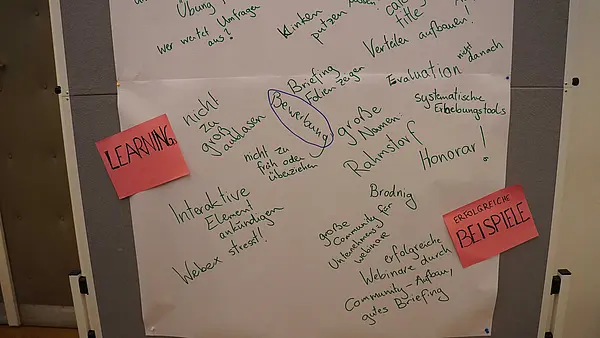 Übung
wer wertet Umfragen
aus?
Klinken
putzen
title
Verteiler aufbauen!
nicht
danach
Evaluation
systematische
Erhebungstools
Briefing
Folien zeigen
Bewerbung
nicht
zu
groß
auslasen
nicht zu
früh oder
überziehen
große
Namen
Rahmstorf
Honorar!
LEARNINGs
Interaktive
Element
ankündigen
Webex stresst!
Brodnig
große
Community für
Unternehmens-
webinare
erfolgreiche
Webinare durch
Community-Aufbau,
gutes Briefing
ERFOLGREICHE
BEISPIELE